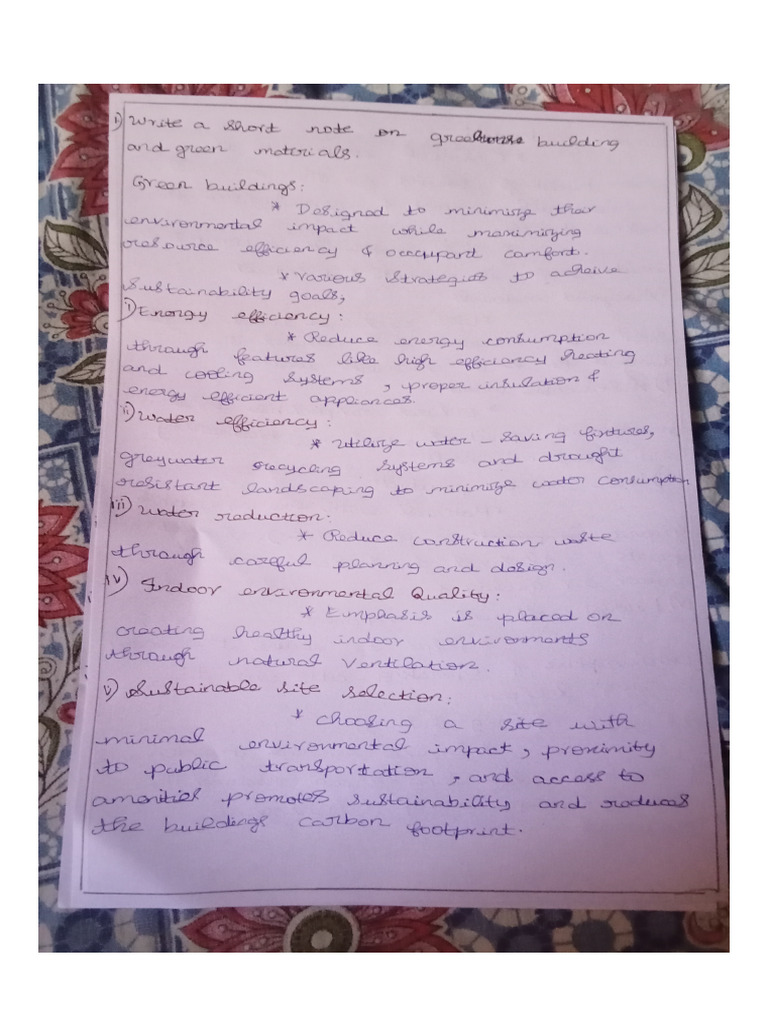 1) Write a short note on green building
and green materials.
Green buildings:
* Designed to minimize their
environmental impact while maximizing
resource efficiency & occupant comfort.
* Various strategies to acheive
sustainability goals,
i) Energy efficiency:
* Reduce energy consumption
through features like high efficiency heating
and cooling systems, proper insulation &
energy efficient appliances.
ii) Water efficiency:
* Utilize water - saving fixtures,
greywater recycling systems and drought
resistant landscaping to minimize water consumption
iii) Water reduction:
* Reduce construction waste
through careful planning and design.
iv) Indoor environmental Quality:
* Emphasis is placed on
creating healthy indoor environments
through natural ventilation.
v) Sustainable site selection:
* choosing a site with
minimal environmental impact, proximity
to public transportation, and access to
amenities promotes sustainability and reduces
the buildings carbon footprint.